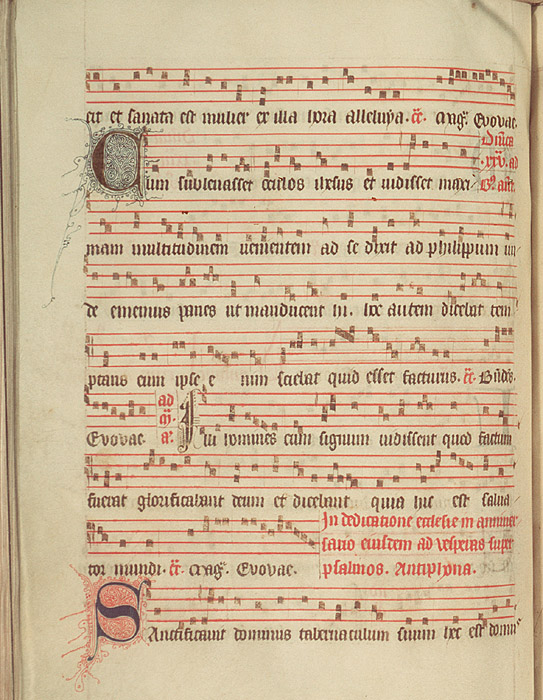 cit et sanata est mulier ex illa hora alleluya. Euovae.
Dnica
.xxv. ad
Cum subleuasset oculos ihesus et uidisset maxi
Bn ant
mam multitudinem uenientem ad se dixit ad philippum un
de ememus panes ut manducent hii. hec autem dicebat tem
ptans eum ipse e nim sciebat quid esset facturus. Bndcs.
ad
m
a
Euovae. Illi homines cum signum uidissent quod factum
fuerat glorificabant deum et dicebant quia hic est salua
In dedicatione ecclesie in anniuer
sario eiusdem ad vesperas super
tor mundi. Euovae. psalmos. Antiphona.
Sanctificauit dominus tabernaculum suum hec est domus